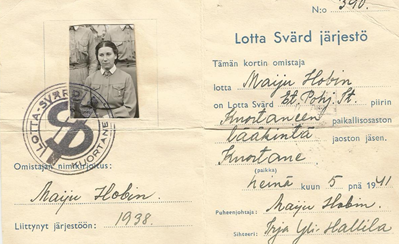 LOTTA-SVÄRD
KUORTANE
Omistajan nimikirjoitus:
Maiju Hobin.
Liittynyt järjestöön: 1938.
N:o 390.
Lotta Svärd järjestö
Tämän kortin omistaja
lotta Maiju Hobin
on Lotta Svärd Et. Pohj. piirin
Kuortaneen paikallisosaston
lääkintä jaoston jäsen.
Kuortane
(paikka)
heinä kuun 5 pnä 1941
Puheenjohtaja: Maiju Hobin.
Sihteeri: Irja Yli-Hallila